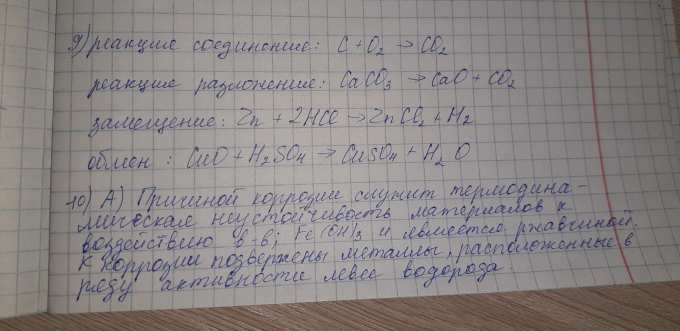 9) реакцие соединение: C + O₂ → CO₂
реакцие разложение: CaCO₃ → CaO + CO₂
замещение: Zn + 2HCl → ZnCl₂ + H₂
обмен : CuO + H₂SO₄ → CuSO₄ + H₂O
10) А) Причиной коррозии служит термодина-
мическая неустойчивость материалов к
воздействию в-в; Fe(OH)₃ и является ржавчиной.
К коррозии подвержены металлы, расположенные в
ряду активности левее водорода